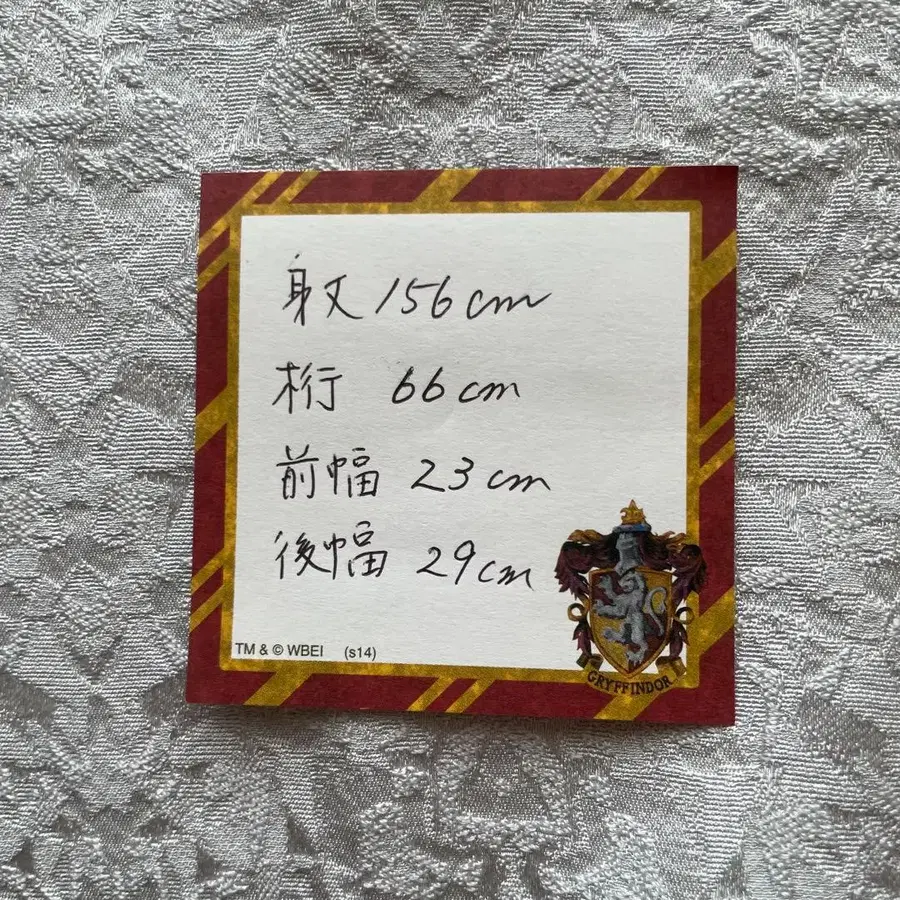 身丈 156cm
桁 66cm
前幅 23cm
後幅 29cm
TM & © WBEI (s14)
GRYFFINDOR